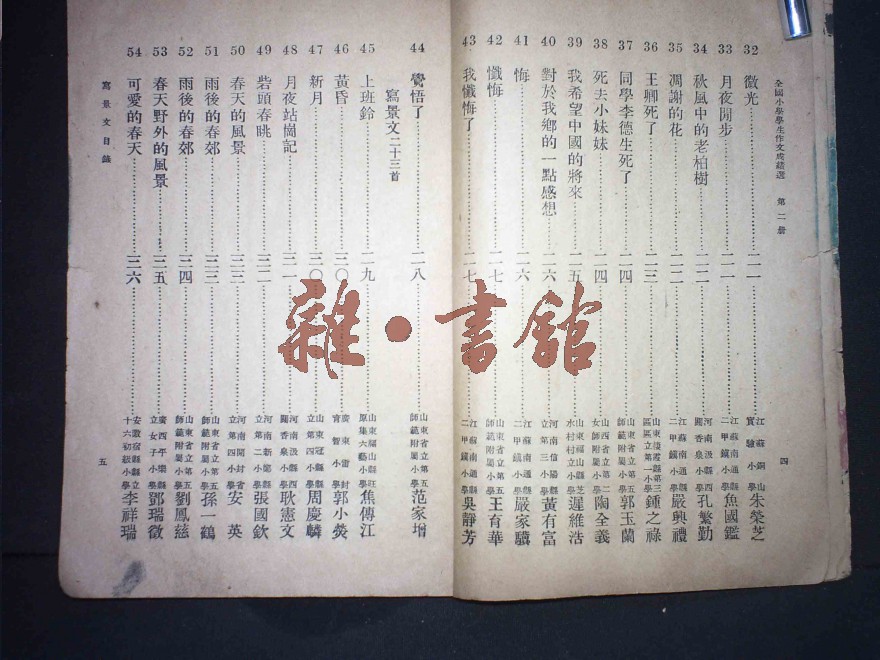 全國小學學生作文成績選 第二册
32 微光……二一 江蘇銅山實驗小學 朱榮芝
33 月夜閒步……二一 江蘇南通縣二甲鎮小學 魚國鑑
34 秋風中的老柏樹……二二 河南汲縣西關香泉小學 孔繁勤
35 凋謝的花……二二 江蘇南通縣二甲鎮小學 嚴興禮
36 王卿死了……二三 鍾之祿
37 同學李德生死了……二四 山東省立第五師範附屬小學 郭玉蘭
38 死去小妹妹……二四 山西省立第一女師附小學 陶全義
39 我希望中國的將來……二五 遲維浩
40 對於我鄉的一點感想……二六 河南信陽縣立第三小學 黃有富
41 悔……二六 江蘇南通縣二甲鎮小學 嚴家驥
42 懺悔……二七 山東省立第五師範附屬小學 王育華
43 我懺悔了……二七 江蘇南通縣二甲鎮小學 吳靜芳
四
44 覺悟了……二八 山東省立第五師範附屬小學 范家增
寫景文二十三首
45 上班鈴……二九 焦傳江
46 黃昏……三〇 郭小熒
47 新月……三〇 山東冠縣縣立第四小學 周慶麟
48 月夜站崗記……三一 河南汲縣西關香泉小學 耿憲文
49 砦頭春眺……三二 河南新鄭縣立第二小學 張國欽
50 春天的風景……三三 河南開封省立第四小學 安英
51 雨後的春郊……三三 山東省立第五師範附屬小學 孫一鶴
52 雨後的春郊……三四 山東省立第五師範附屬小學 劉鳳慈
53 春天野外的風景……三五 廣西平樂縣立女子小學 鄧瑞徵
54 可愛的春天……三六 安徽宿縣縣立十六初級小學 李祥瑞
寫景文目錄
五
雜·書館